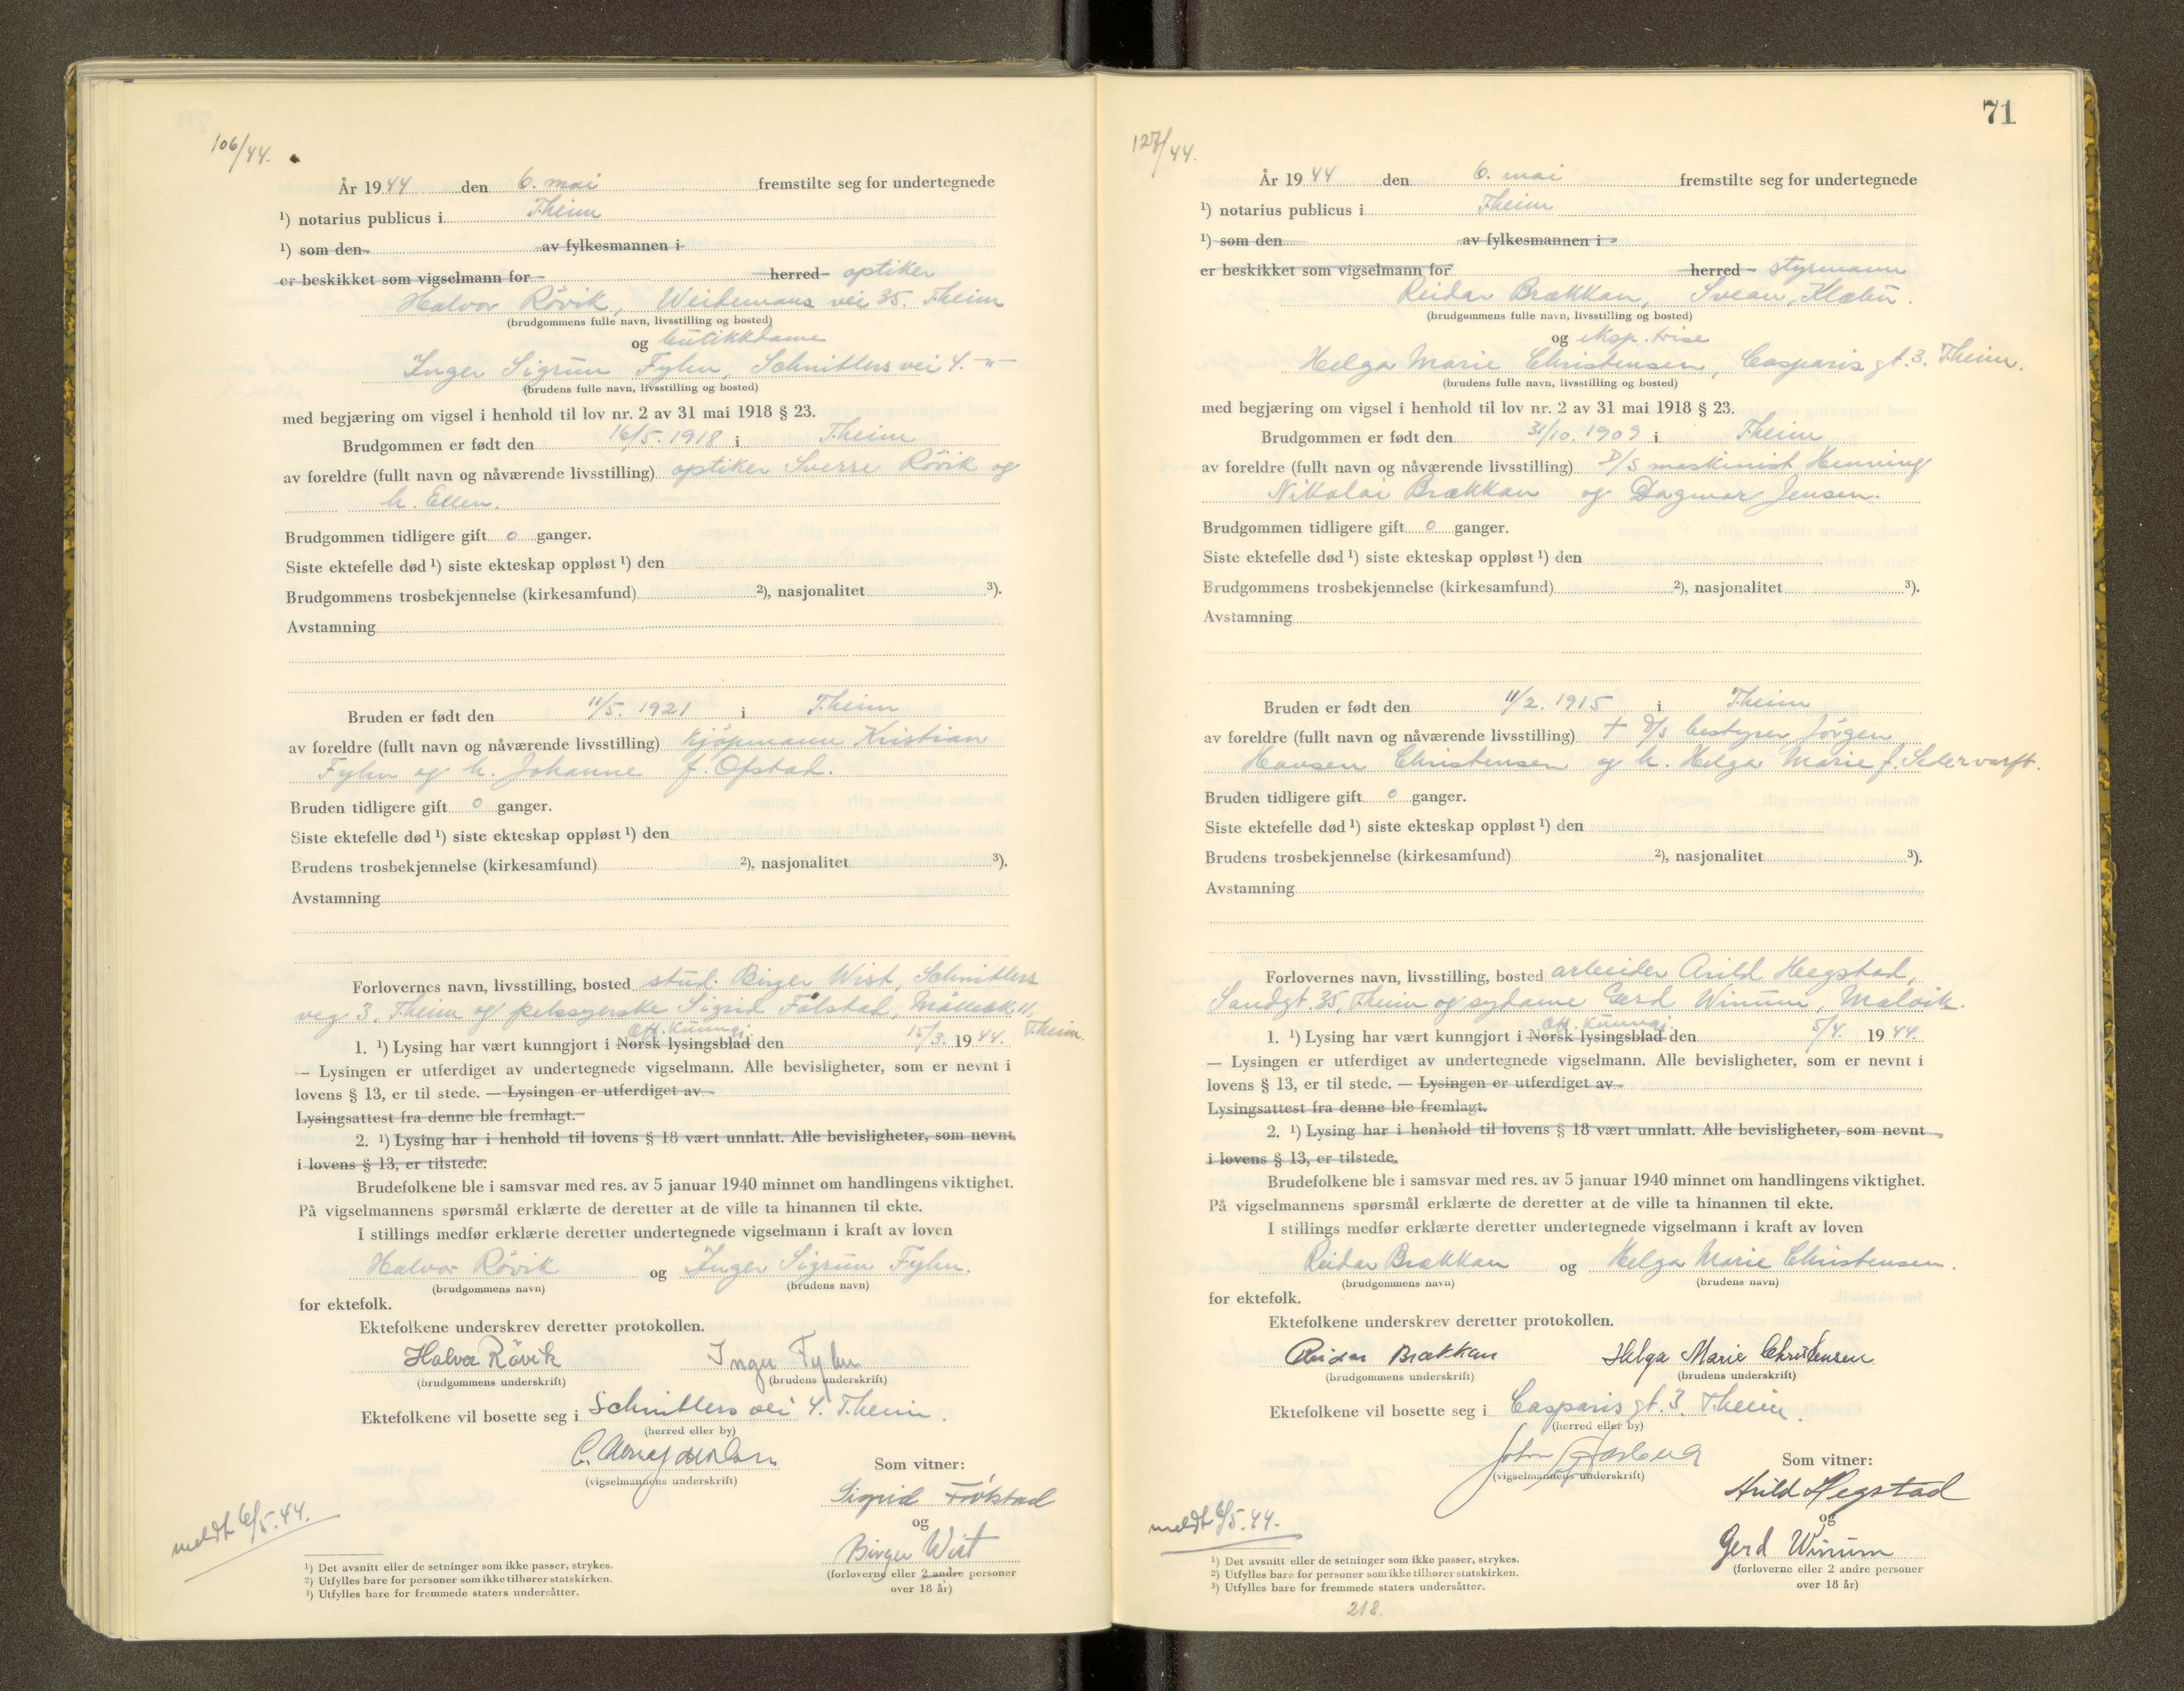 106/44.
År 1944 den 6. mai fremstilte seg for undertegnede
¹) notarius publicus i T.heim
¹) som den av fylkesmannen i
er beskikket som vigselmann for herred optiker
Halvor Rövik, Weidemans vei 35. T.heim
(brudgommens fulle navn, livsstilling og bosted)
og butikkdame
Inger Sigrun Fyhn, Schnitlers vei 4. -"-
(brudens fulle navn, livsstilling og bosted)
med begjæring om vigsel i henhold til lov nr. 2 av 31 mai 1918 § 23.
Brudgommen er født den 16/5. 1918 i T.heim
av foreldre (fullt navn og nåværende livsstilling) optiker Sverre Rövik og
h. Ellen.
Brudgommen tidligere gift 0 ganger.
Siste ektefelle død ¹) siste ekteskap oppløst ¹) den
Brudgommens trosbekjennelse (kirkesamfund) ²), nasjonalitet ³).
Avstamning
Bruden er født den 11/5. 1921 i T.heim
av foreldre (fullt navn og nåværende livsstilling) kjöpmann Kristian
Fyhn og h. Johanne f. Ofstad.
Bruden tidligere gift 0 ganger.
Siste ektefelle død ¹) siste ekteskap oppløst ¹) den
Brudens trosbekjennelse (kirkesamfund) ²), nasjonalitet ³).
Avstamning
Forlovernes navn, livsstilling, bosted stud. Birger Wist, Schnitlers
veg 3, T.heim og pelssyerske Sigrid Fölstad, 11, T.heim
Off. kunngj.
1. ¹) Lysing har vært kunngjort i Norsk lysingsblad den 15/3. 1944.
— Lysingen er utferdiget av undertegnede vigselmann. Alle bevisligheter, som er nevnt i
lovens § 13, er til stede. — Lysingen er utferdiget av
Lysingsattest fra denne ble fremlagt.
2. ¹) Lysing har i henhold til lovens § 18 vært unnlatt. Alle bevisligheter, som nevnt
i lovens § 13, er tilstede.
Brudefolkene ble i samsvar med res. av 5 januar 1940 minnet om handlingens viktighet.
På vigselmannens spørsmål erklærte de deretter at de ville ta hinannen til ekte.
I stillings medfør erklærte deretter undertegnede vigselmann i kraft av loven
Halvor Rövik og Inger Sigrun Fyhn.
(brudgommens navn) (brudens navn)
for ektefolk.
Ektefolkene underskrev deretter protokollen.
Halvor Rövik Inger Fyhn
(brudgommens underskrift) (brudens underskrift)
Ektefolkene vil bosette seg i Schnitlers vei 4. T.heim.
(herred eller by)
(vigselmannens underskrift)
Som vitner:
Sigrid Fölstad
og
Birger Wist
(forloverne eller 2 andre personer
over 18 år)
meldt 6/5.44.
¹) Det avsnitt eller de setninger som ikke passer, strykes.
²) Utfylles bare for personer som ikke tilhører statskirken.
³) Utfylles bare for fremmede staters undersåtter.
71
127/44.
År 1944 den 6. mai fremstilte seg for undertegnede
¹) notarius publicus i T.heim
¹) som den av fylkesmannen i
er beskikket som vigselmann for herred styrmann
Reidar Brækkan, Svean, Klæbu.
(brudgommens fulle navn, livsstilling og bosted)
og eksp.trise
Helga Marie Christensen, Casparis gt. 3. T.heim.
(brudens fulle navn, livsstilling og bosted)
med begjæring om vigsel i henhold til lov nr. 2 av 31 mai 1918 § 23.
Brudgommen er født den 31/10. 1909 i T.heim
av foreldre (fullt navn og nåværende livsstilling) D/S maskinist Henning
Nikolai Brækkan og Dagmar Jensen.
Brudgommen tidligere gift 0 ganger.
Siste ektefelle død ¹) siste ekteskap oppløst ¹) den
Brudgommens trosbekjennelse (kirkesamfund) ²), nasjonalitet ³).
Avstamning
Bruden er født den 11/2. 1915 i T.heim
av foreldre (fullt navn og nåværende livsstilling) + D/S bestyrer Jörgen
Hansen Christensen og h. Helga Marie f.
Bruden tidligere gift 0 ganger.
Siste ektefelle død ¹) siste ekteskap oppløst ¹) den
Brudens trosbekjennelse (kirkesamfund) ²), nasjonalitet ³).
Avstamning
Forlovernes navn, livsstilling, bosted arbeider Arild Hegstad,
Sandgt. 35, T.heim og sydame Gerd Winum, Malvik.
Off. kunngj.
1. ¹) Lysing har vært kunngjort i Norsk lysingsblad den 5/4. 1944.
— Lysingen er utferdiget av undertegnede vigselmann. Alle bevisligheter, som er nevnt i
lovens § 13, er til stede. — Lysingen er utferdiget av
Lysingsattest fra denne ble fremlagt.
2. ¹) Lysing har i henhold til lovens § 18 vært unnlatt. Alle bevisligheter, som nevnt
i lovens § 13, er tilstede.
Brudefolkene ble i samsvar med res. av 5 januar 1940 minnet om handlingens viktighet.
På vigselmannens spørsmål erklærte de deretter at de ville ta hinannen til ekte.
I stillings medfør erklærte deretter undertegnede vigselmann i kraft av loven
Reidar Brækkan og Helga Marie Christensen.
(brudgommens navn) (brudens navn)
for ektefolk.
Ektefolkene underskrev deretter protokollen.
Reidar Brækkan Helga Marie Christensen
(brudgommens underskrift) (brudens underskrift)
Ektefolkene vil bosette seg i Casparis gt. 3. T.heim.
(herred eller by)
John
(vigselmannens underskrift)
Som vitner:
Arild Hegstad
og
Gerd Winum
(forloverne eller 2 andre personer
over 18 år)
meldt 6/5.44.
¹) Det avsnitt eller de setninger som ikke passer, strykes.
²) Utfylles bare for personer som ikke tilhører statskirken.
³) Utfylles bare for fremmede staters undersåtter.
218.